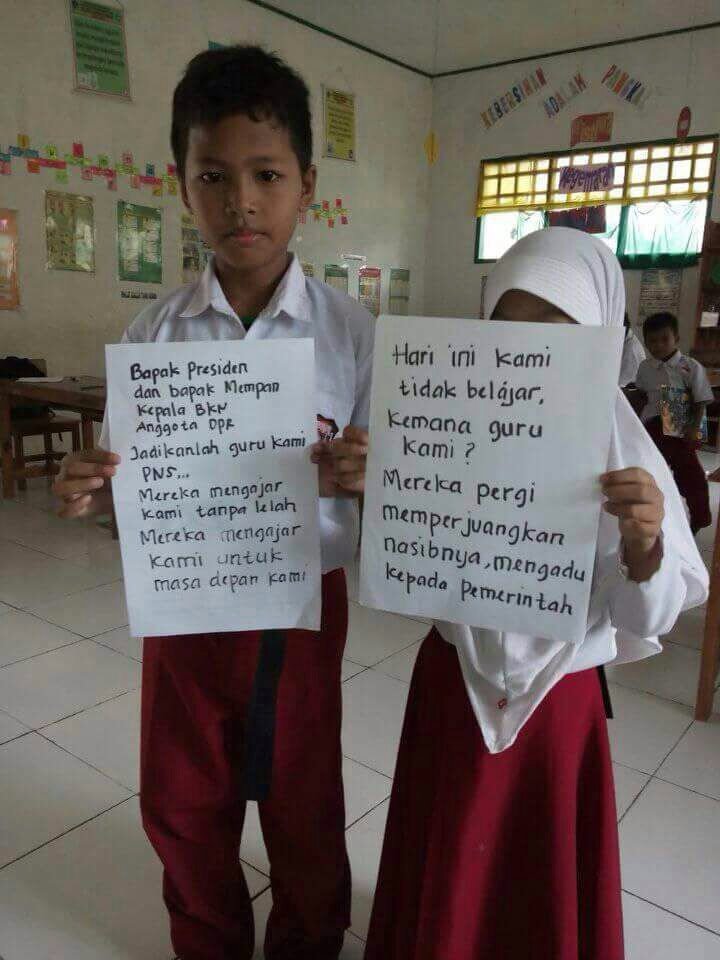 KEBERSIHAN
ADALAH
PANGKAL
Bapak Presiden
dan bapak Mempan
Kepala BKN
Anggota DPR
Jadikanlah guru kami
PNS...
Mereka mengajar
kami tanpa lelah
Mereka mengajar
kami untuk
masa depan kami
Hari ini kami
tidak belajar,
kemana guru
kami?
Mereka pergi
memperjuangkan
nasibnya, mengadu
kepada pemerintah